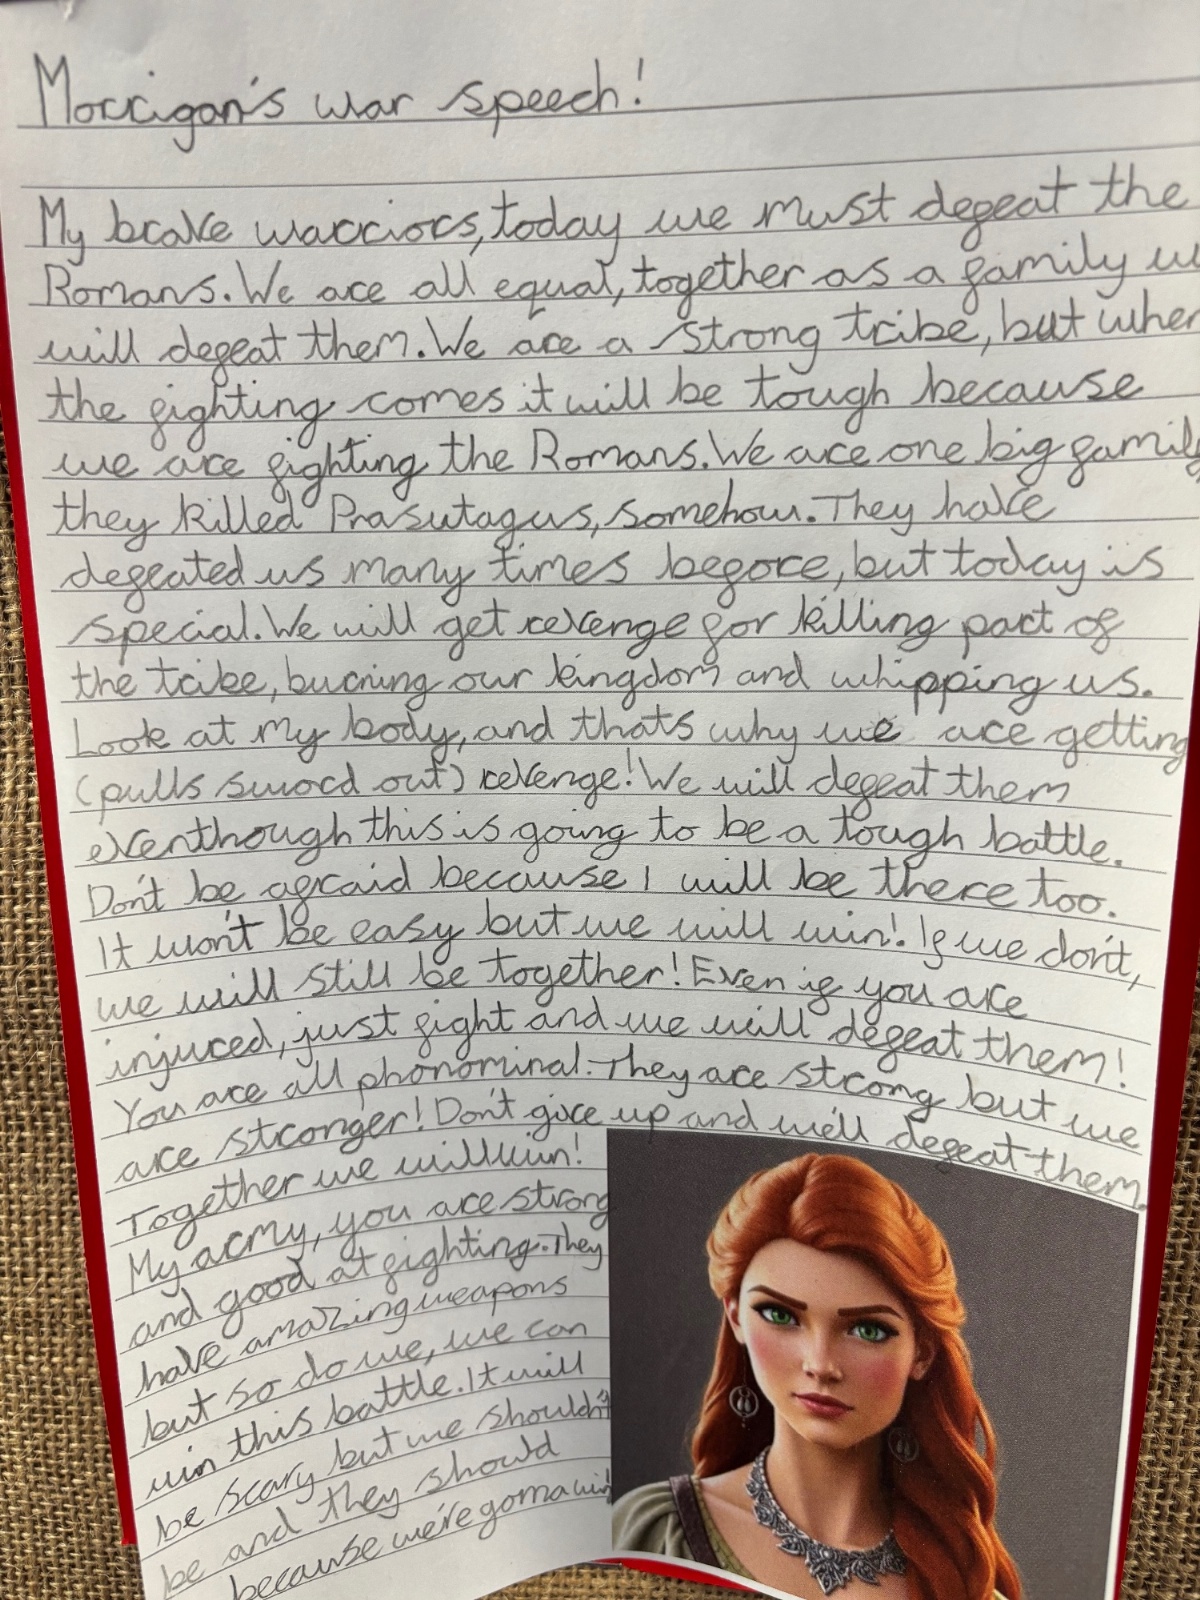 Morrigan's war speech!
My brave warriors, today we must defeat the
Romans. We are all equal, together as a family
will defeat them. We are a strong tribe, but when
the fighting comes it will be tough because
we are fighting the Romans. We are one big family
they killed Prasutagus, somehow. They have
defeated us many times before, but today is
special. We will get revenge for killing part of
the tribe, burning our kingdom and whipping us.
Look at my body, and thats why we are getting
(pulls sword out) revenge! We will defeat them
eventhough this is going to be a tough battle.
Don't be afraid because I will be there too.
It won't be easy but we will win!. If we don't,
we will still be together! Even if you are
injured, just fight and we will defeat them!
You are all phonominal. They are strong but we
are stronger! Don't give up and we'll defeat them.
Together we will win!
My army, you are strong
and good at fighting. They
have amazing weapons
but so do we, we can
win this battle. It will
be scary but we shouldn't
be and they should
because we're gonna win!